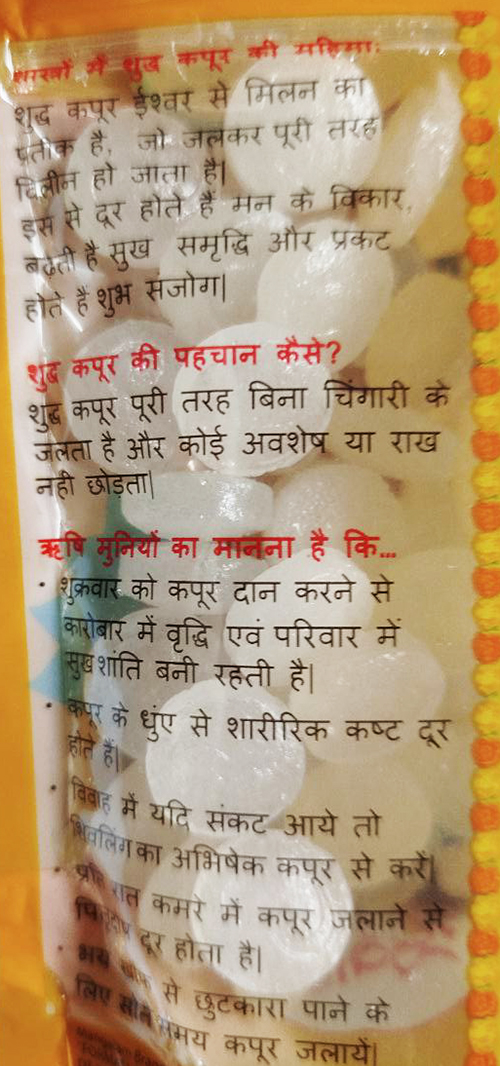 शास्त्रों में शुद्ध कपूर की महिमा:
शुद्ध कपूर ईश्वर से मिलन का
प्रतीक है, जो जलकर पूरी तरह
विलीन हो जाता है|
इस से दूर होते हैं मन के विकार,
बढ़ती है सुख समृद्धि और प्रकट
होते है शुभ संजोग|
शुद्ध कपूर की पहचान कैसे?
शुद्ध कपूर पूरी तरह बिना चिंगारी के
जलता है और कोई अवशेष या राख
नही छोड़ता|
ऋषि मुनियों का मानना है कि...
• शुक्रवार को कपूर दान करने से
कारोबार में वृद्धि एवं परिवार में
सुख शांति बनी रहती है|
• कपूर के धुंए से शारीरिक कष्ट दूर
होते हैं|
• विवाह में यदि संकट आये तो
शिवलिंग का अभिषेक कपूर से करें|
• रात कमरे में कपूर जलाने से
दूर होता है|
• भय से छुटकारा पाने के
लिए सोते समय कपूर जलायें|